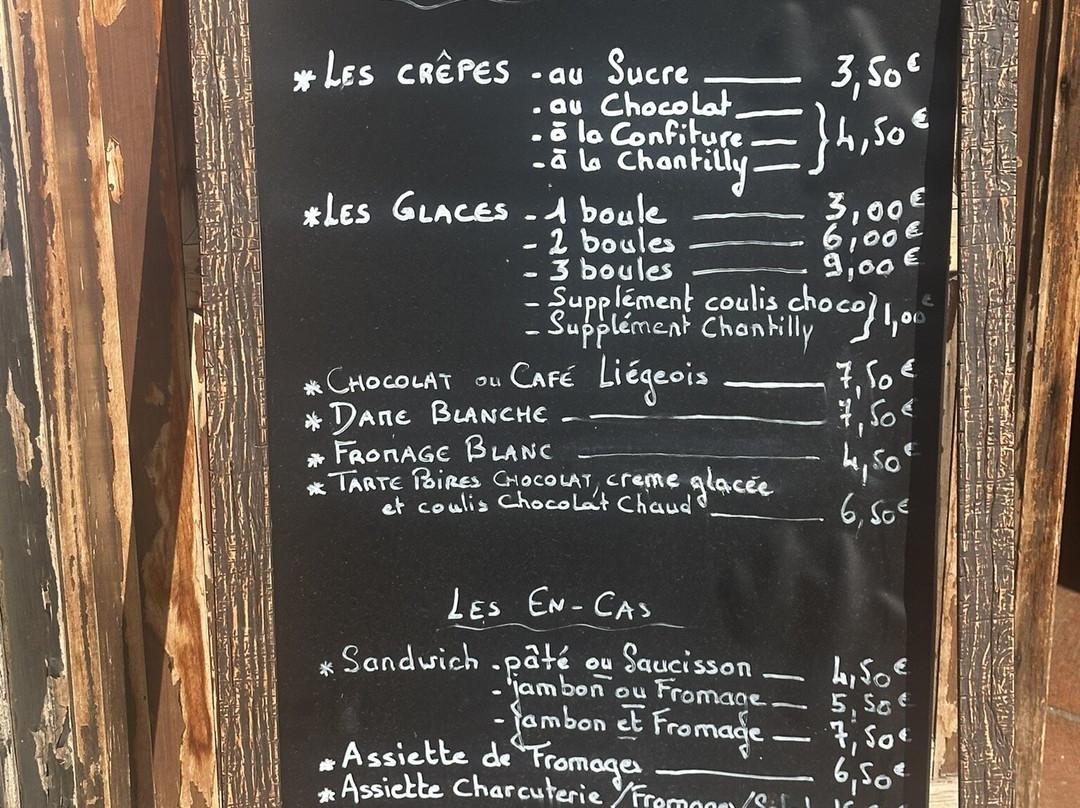 * LES CRÊPES - au Sucre 3,50€
- au Chocolat
- à la Confiture } 4,50€
- à la Chantilly
* LES GLACES - 1 boule 3,00€
- 2 boules 6,00€
- 3 boules 9,00€
- Supplément coulis choco } 1,00€
- Supplément Chantilly
* CHOCOLAT ou CAFÉ Liégeois 7,50€
* DAME BLANCHE 7,50€
* FROMAGE BLANC 4,50€
* TARTE POIRES CHOCOLAT, creme glacée
et coulis Chocolat Chaud 6,50€
LES EN-CAS
* Sandwich - pâté ou Saucisson 4,50€
- jambon ou Fromage 5,50€
- jambon et Fromage 7,50€
* Assiette de Fromages 6,50€
* Assiette Charcuterie / Fromages /